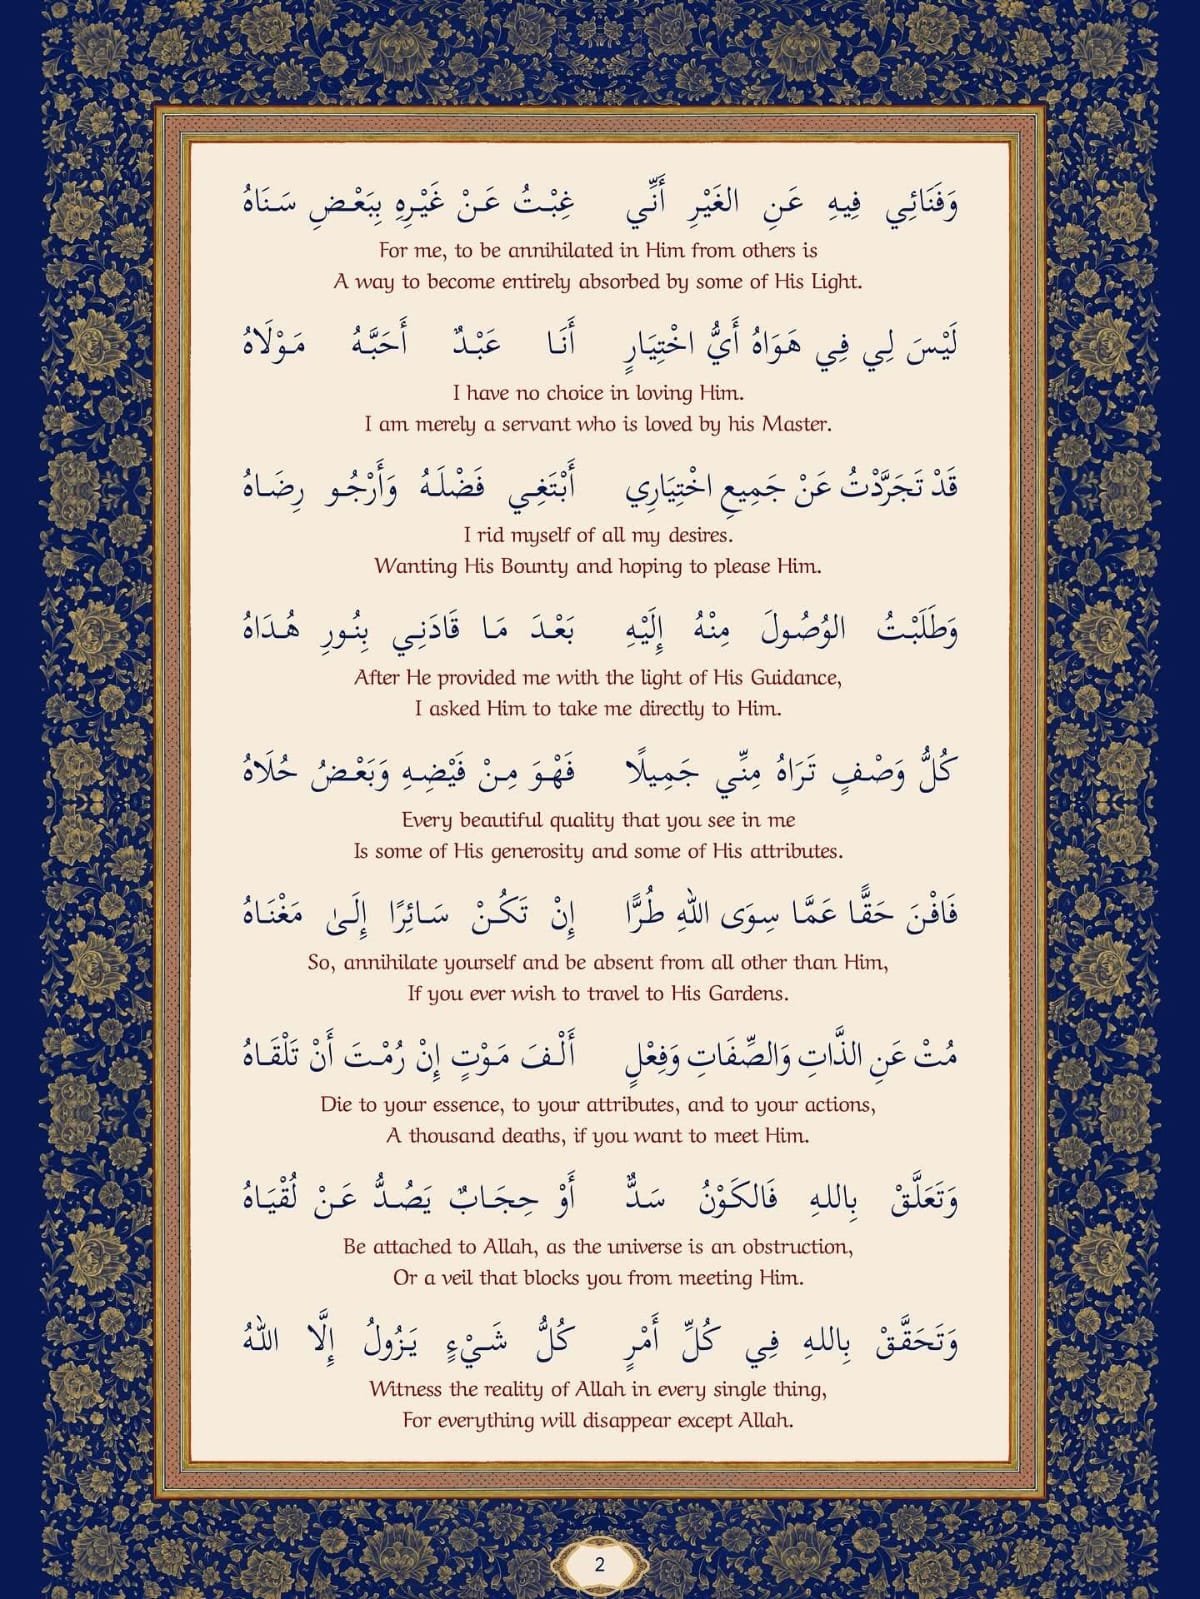 وَفَنَائِي فِيهِ عَنِ الغَيْرِ أَنِّي غِبْتُ عَنْ غَيْرِهِ بِبَعْضِ سَنَاهُ
For me, to be annihilated in Him from others is
A way to become entirely absorbed by some of His Light.
لَيْسَ لِي فِي هَوَاهُ أَيُّ اخْتِيَارٍ أَنَا عَبْدٌ أَحَبَّهُ مَوْلَاهُ
I have no choice in loving Him.
I am merely a servant who is loved by his Master.
قَدْ تَجَرَّدْتُ عَنْ جَمِيعِ اخْتِيَارِي أَبْتَغِي فَضْلَهُ وَأَرْجُو رِضَاهُ
I rid myself of all my desires.
Wanting His Bounty and hoping to please Him.
وَطَلَبْتُ الوُصُولَ مِنْهُ إِلَيْهِ بَعْدَ مَا قَادَنِي بِنُورِ هُدَاهُ
After He provided me with the light of His Guidance,
I asked Him to take me directly to Him.
كُلُّ وَصْفٍ تَرَاهُ مِنِّي جَمِيلًا فَهْوَ مِنْ فَيْضِهِ وَبَعْضُ حُلَاهُ
Every beautiful quality that you see in me
Is some of His generosity and some of His attributes.
فَافْنَ حَقًّا عَمَّا سِوَى اللهِ طُرًّا إِنْ تَكُنْ سَائِرًا إِلَىٰ مَغْنَاهُ
So, annihilate yourself and be absent from all other than Him,
If you ever wish to travel to His Gardens.
مُتْ عَنِ الذَّاتِ وَالصِّفَاتِ وَفِعْلٍ أَلْفَ مَوْتٍ إِنْ رُمْتَ أَنْ تَلْقَاهُ
Die to your essence, to your attributes, and to your actions,
A thousand deaths, if you want to meet Him.
وَتَعَلَّقْ بِاللهِ فَالكَوْنُ سَدٌّ أَوْ حِجَابٌ يَصُدُّ عَنْ لُقْيَاهُ
Be attached to Allah, as the universe is an obstruction,
Or a veil that blocks you from meeting Him.
وَتَحَقَّقْ بِاللهِ فِي كُلِّ أَمْرٍ كُلُّ شَيْءٍ يَزُولُ إِلَّا اللهُ
Witness the reality of Allah in every single thing,
For everything will disappear except Allah.
2